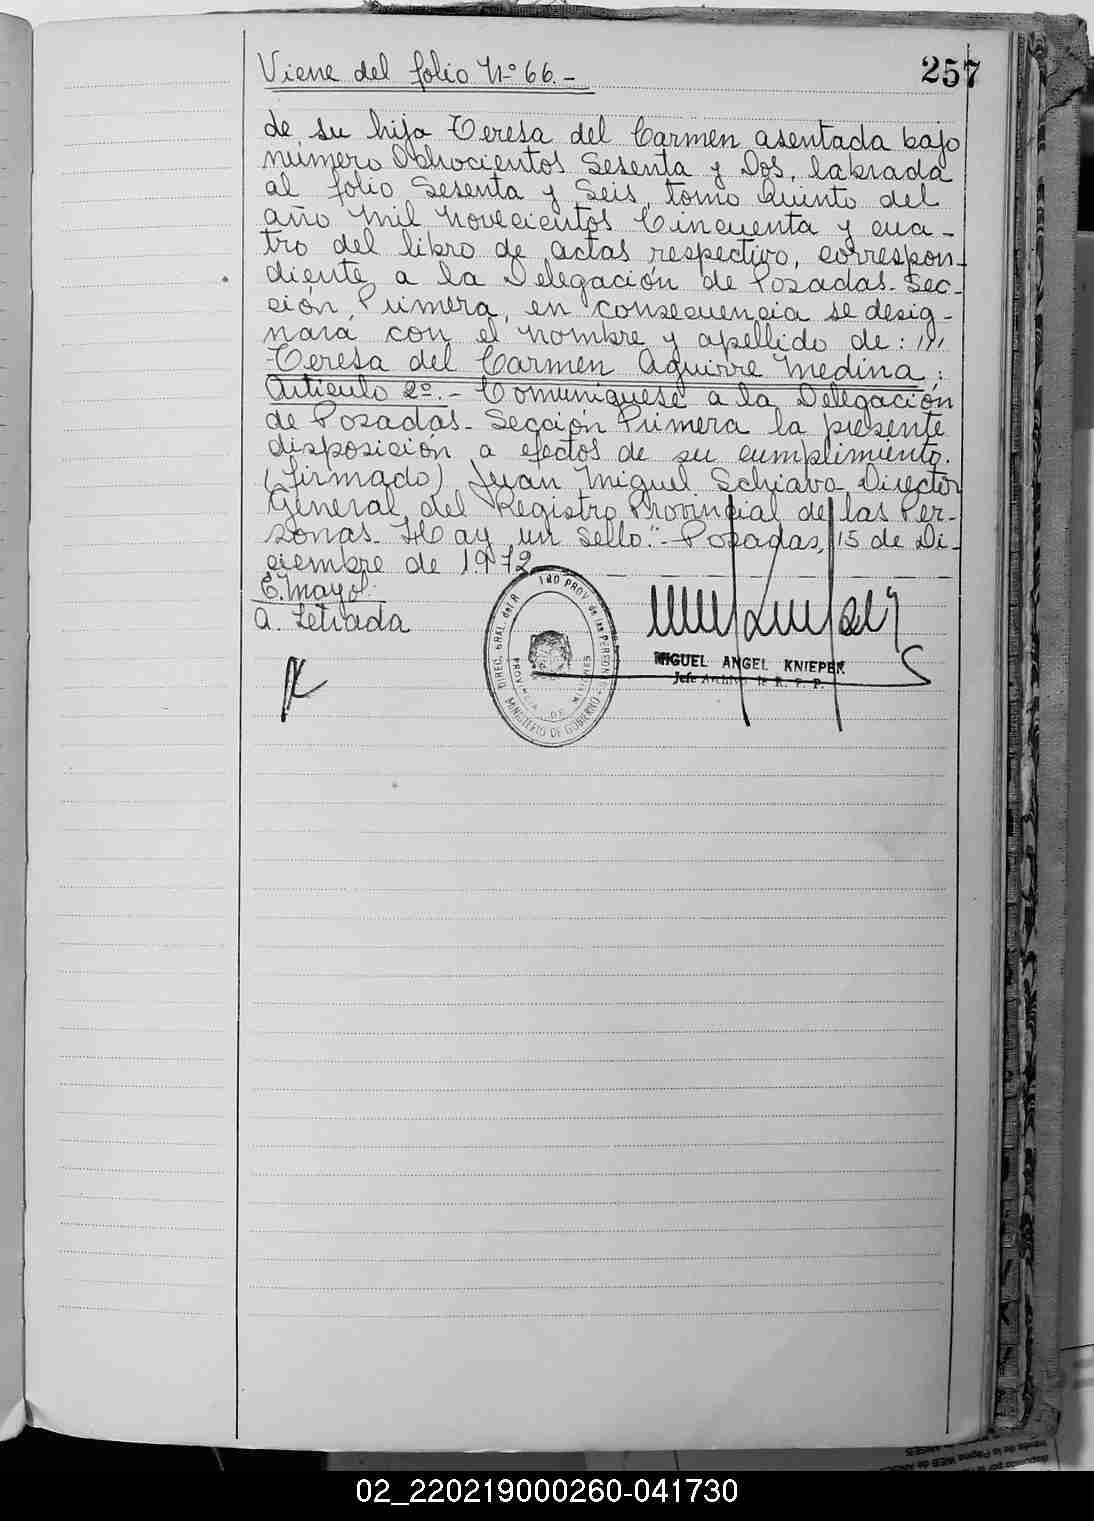 257
Viene del folio Nº 66.-
de su hija Teresa del Carmen asentada bajo
número Ochocientos Sesenta y Dos, labrada
al folio Sesenta y Seis, tomo Quinto del
año Mil Novecientos Cincuenta y cua-
tro del libro de actas respectivo, correspon-
diente a la Delegación de Posadas - Sec-
ción Primera, en consecuencia se desig-
nará con el nombre y apellido de:
Teresa del Carmen Aguirre Medina;
Artículo 2º.- Comuníquese a la Delegación
de Posadas - Sección Primera la presente
disposición a efectos de su cumplimiento.
(firmado) Juan Miguel Schiavo Director
General del Registro Provincial de las Per-
sonas - Hay un sello."- Posadas, 15 de Di-
ciembre de 1972
E. Mayol
A. Letrada
DIREC. GRAL. del R
PROV. de las PERSONAS
PROVINCIA DE MISIONES
MINISTERIO DE GOBIERNO
MIGUEL ANGEL KNIEPER
Jefe Archivo R. P. P.
02_220219000260-041730